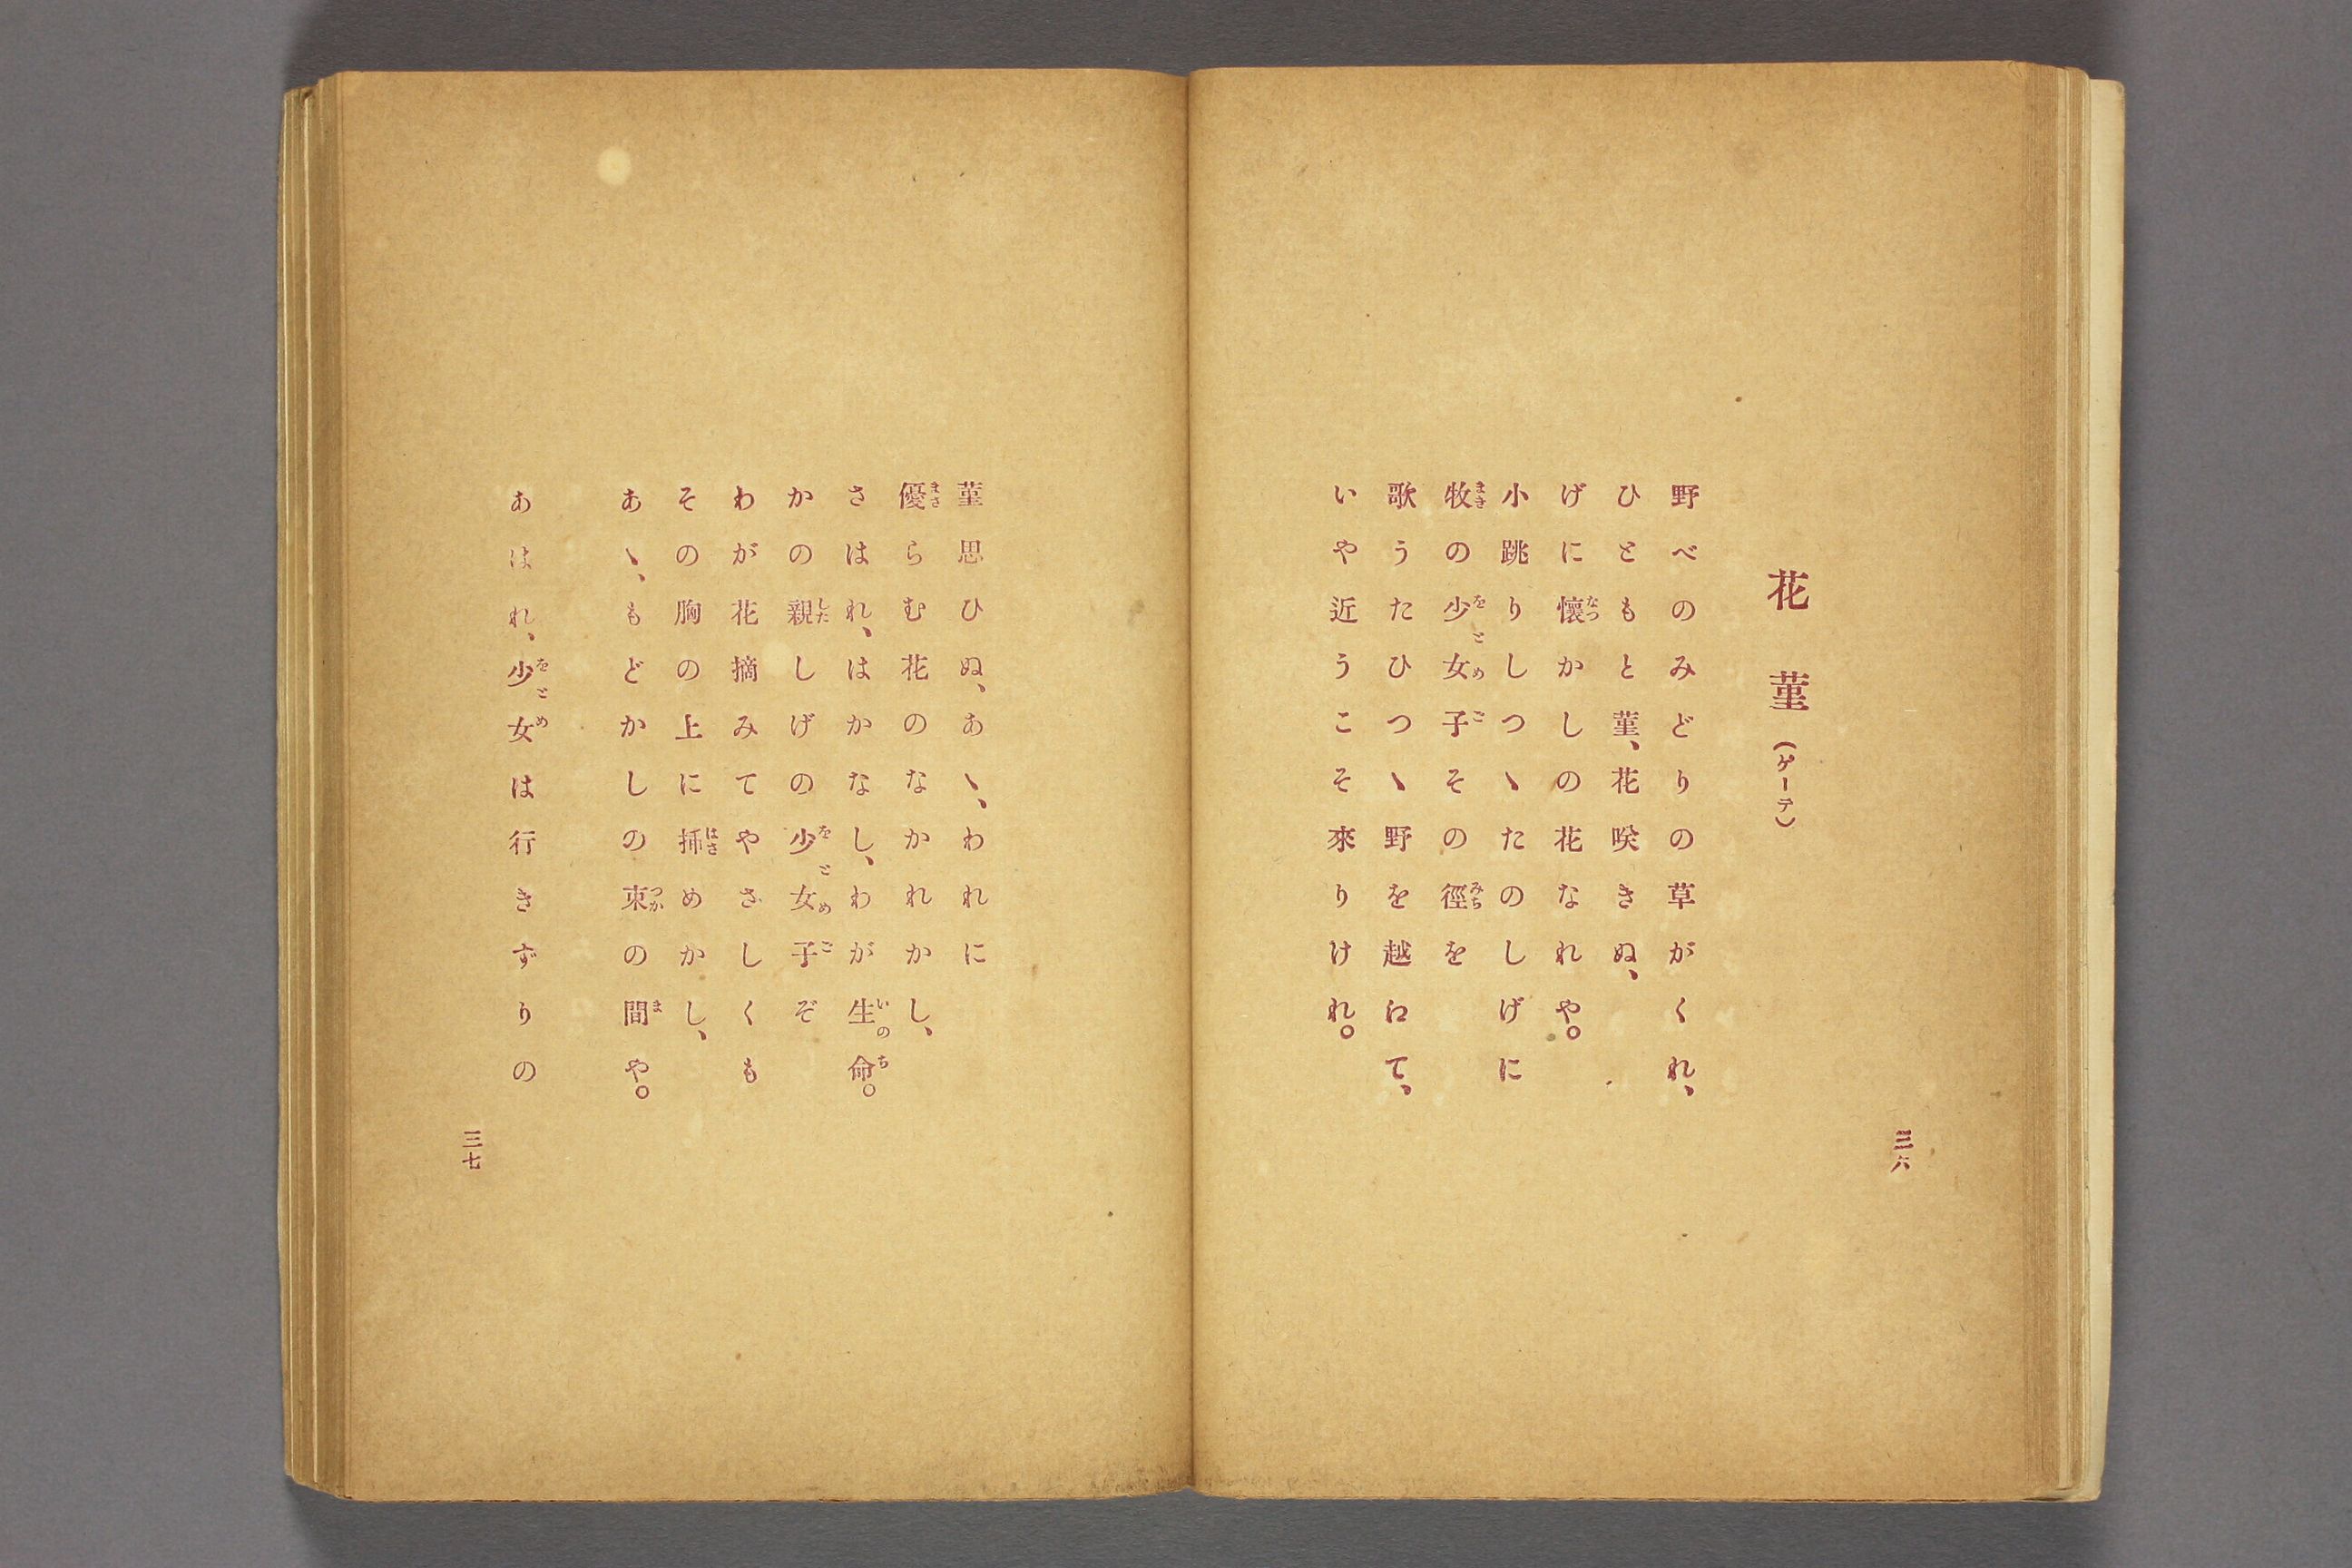 花菫（ゲーテ）
野べのみどりの草がくれ、
ひともと菫、花咲きぬ、
げに懷かしの花なれや。
小跳りしつゝたのしげに
牧の少女子その徑を
歌うたひつゝ野を越江て、
いや近うこそ來りけれ。
三六
菫思ひぬ、あゝ、われに
優らむ花のなかれかし、
さはれ、はかなし、わが生命。
かの親しげの少女子ぞ
わが花摘みてやさしくも
その胸の上に揷めかし、
あゝ、もどかしの束の間や。
あはれ、少女は行きずりの
三七